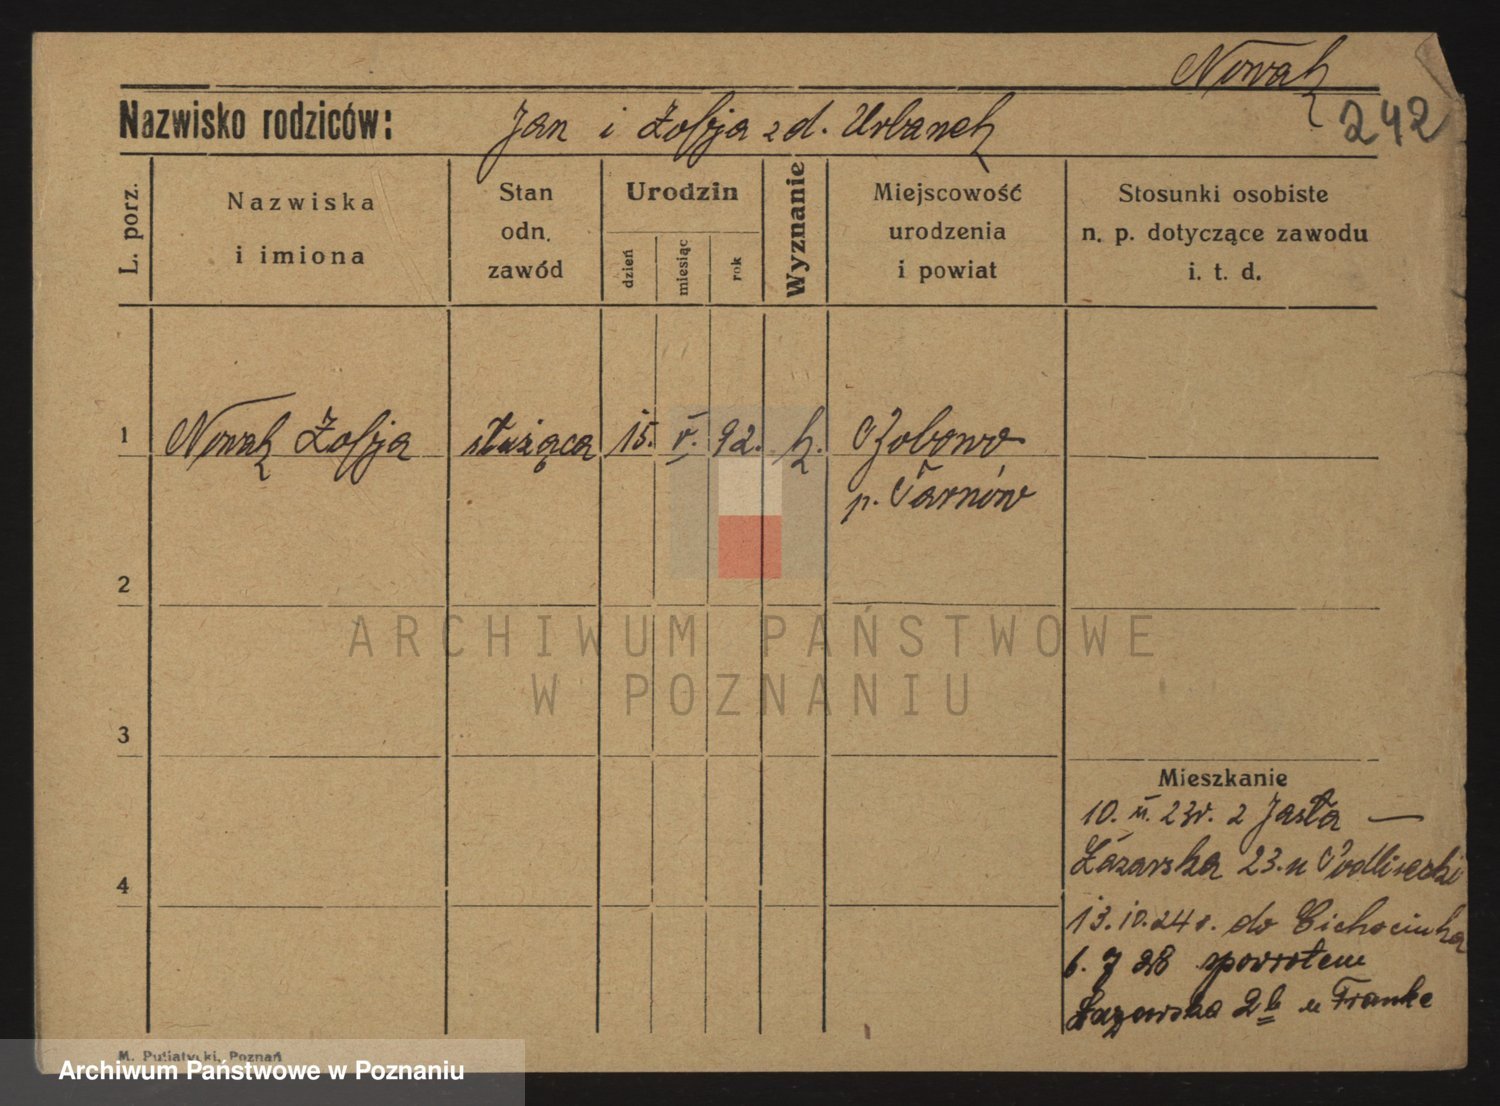 Nowak
242
Nazwisko rodziców: Jan i Zofja z d. Urbanek
L. porz.
Nazwiska
i imiona
Stan
odn.
zawód
Urodzin
dzień
miesiąc
rok
Wyznanie
Miejscowość
urodzenia
i powiat
Stosunki osobiste
n. p. dotyczące zawodu
i. t. d.
1 Nowak Zofja służąca 15. V. 92. k.
p. Tarnów
2
3
4
Mieszkanie
10. 23r. z Jasła —
23. u Podlisecki
13.10.24 r. do Cichocinka
6. 7 28 spowrotem
2b u Franke
M. Putiatycki, Poznań
ARCHIWUM PAŃSTWOWE
W POZNANIU
Archiwum Państwowe w Poznaniu